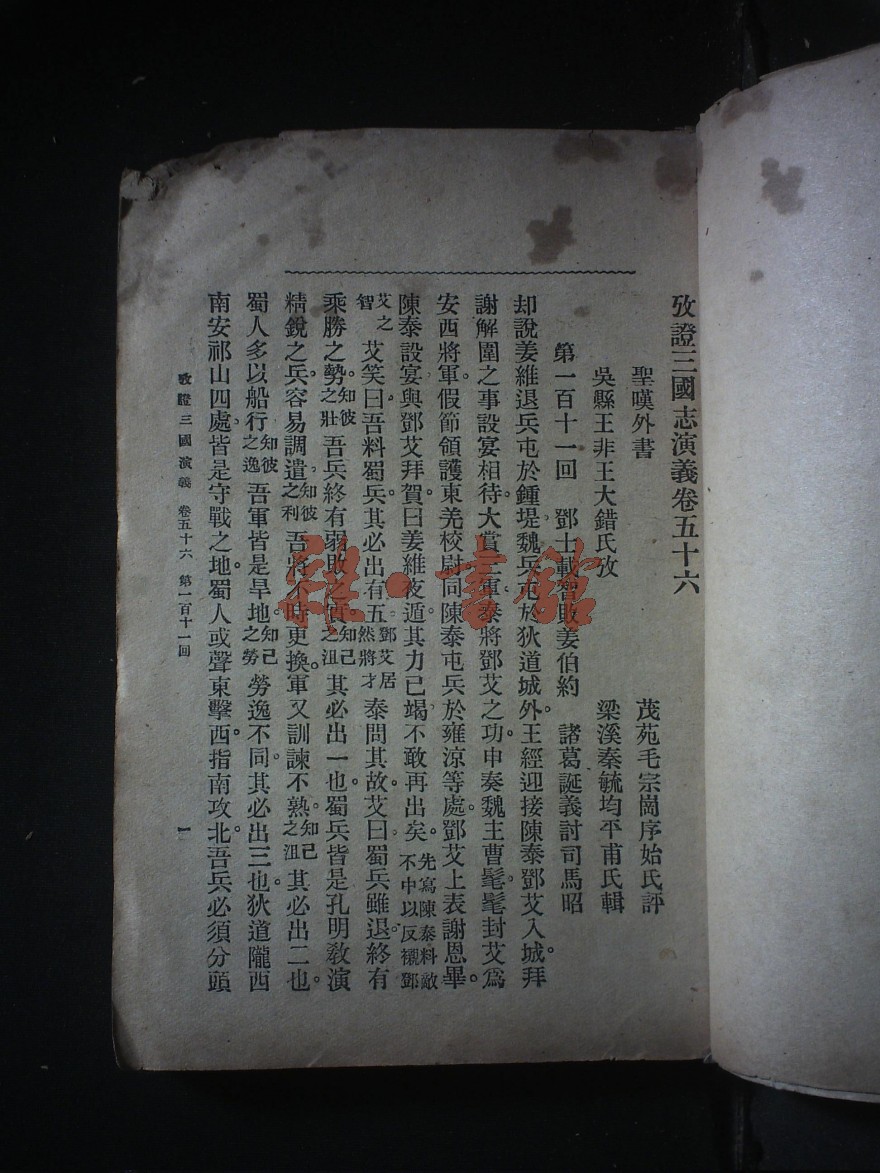 攷證三國志演義卷五十六
聖嘆外書　茂苑毛宗崗序始氏評
吳縣王非王大錯氏攷　梁溪秦毓均平甫氏輯
第一百十一回　鄧士載智敗姜伯約　諸葛誕義討司馬昭
却說姜維退兵屯於鍾堤魏兵屯於狄道城外。王經迎接陳泰鄧艾入城。拜
謝解圍之事設宴相待。大賞三軍。泰將鄧艾之功。申奏魏主曹髦。髦封艾爲
安西將軍。假節領護東羌校尉同陳泰屯兵於雍涼等處。鄧艾上表謝恩畢。
陳泰設宴與鄧艾拜賀。曰姜維夜遁。其力已竭。不敢再出矣。先寫陳泰料敵不中以反襯鄧
艾之智艾笑曰。吾料蜀兵。其必出有五。鄧艾居然將才泰問其故。艾曰。蜀兵雖退。終有
乘勝之勢。知彼之壯吾兵終有弱敗之實。知己之沮其必出一也。蜀兵皆是孔明教演
精銳之兵。容易調遣。知彼之利吾將不時更換。軍又訓諫不熟。知己之沮其必出二也。
蜀人多以船行。知彼之逸吾軍皆是旱地。知己之勞勞逸不同。其必出三也。狄道隴西
南安祁山四處。皆是守戰之地。蜀人或聲東擊西。指南攻北。吾兵必須分頭
攷證三國演義　卷五十六　第一百十一回　一
雜·書館